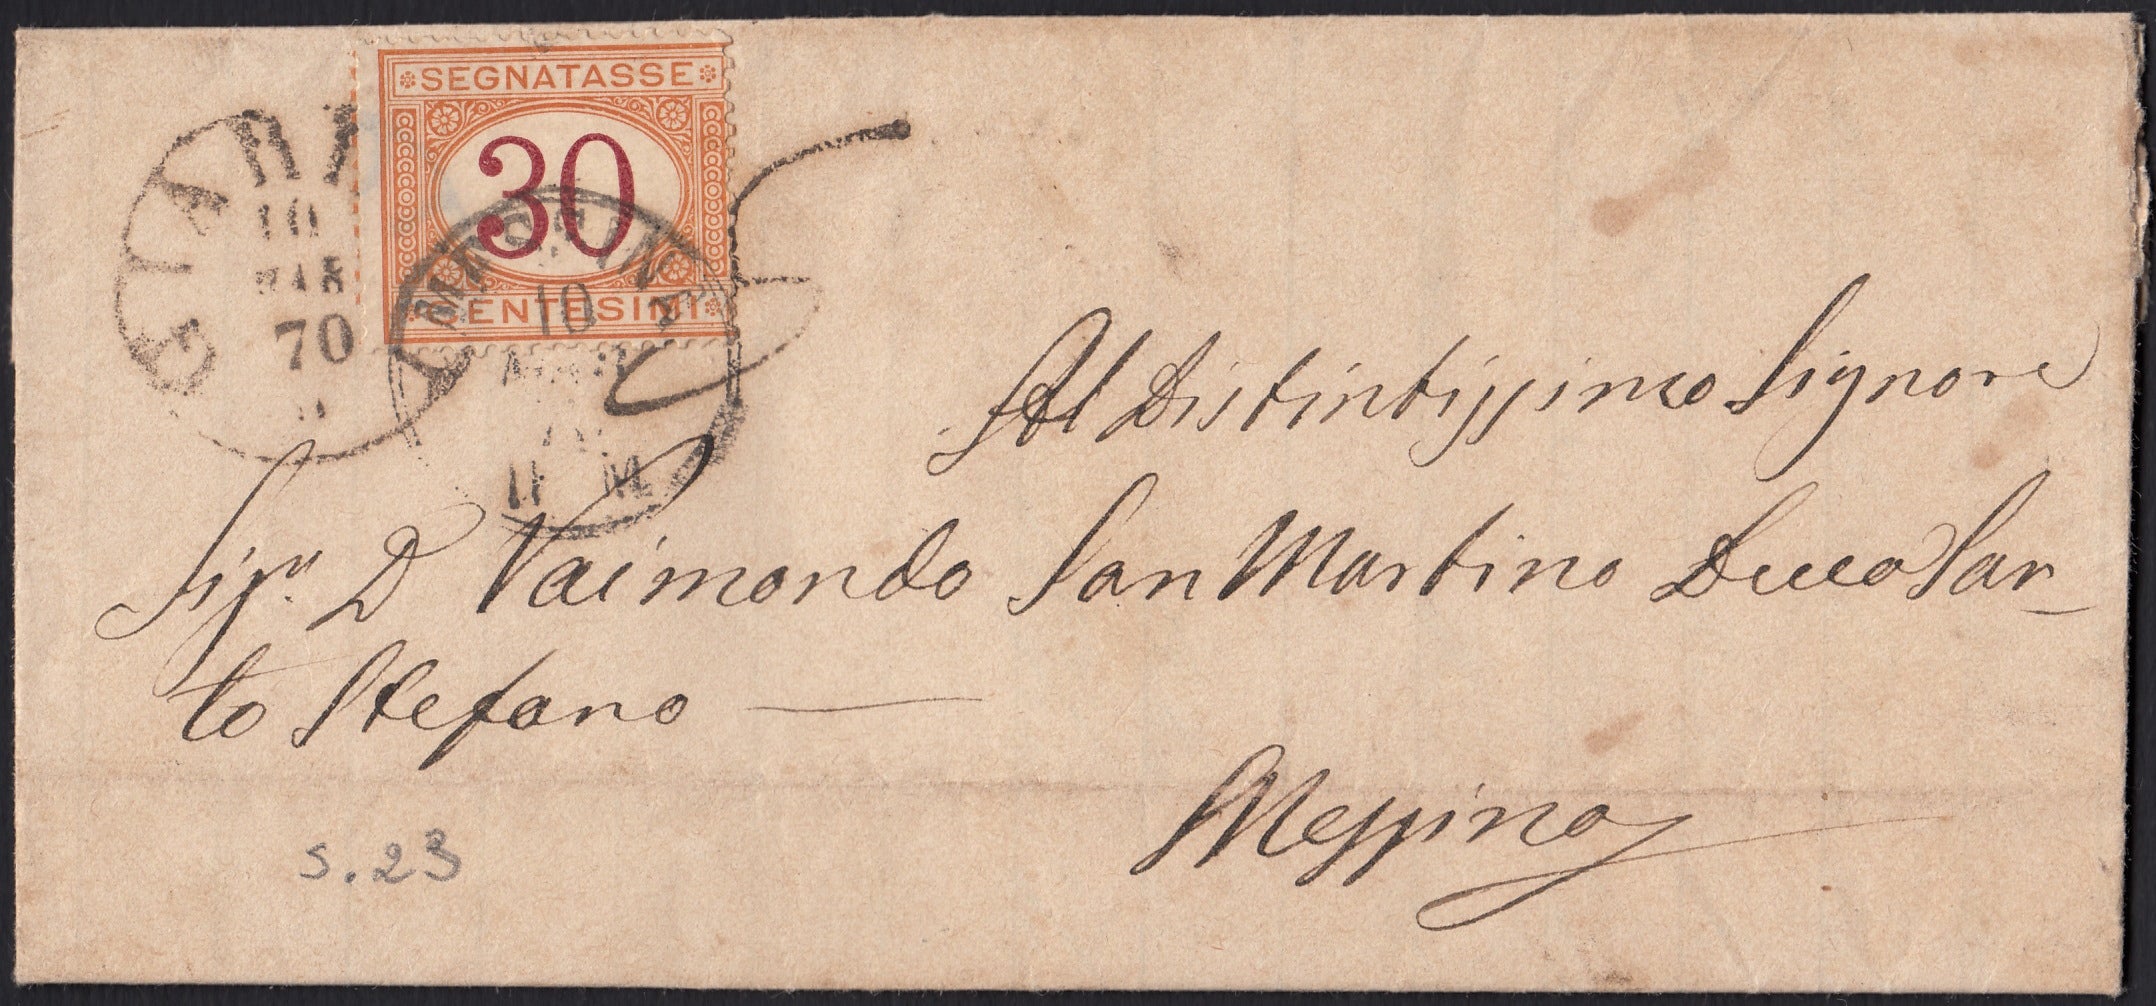 SEGNATASSE
30
CENTESIMI
GIARR
10
MAR
70
MESSINA
10
MAR
Al Distintissimo Signore
Sigr. D Raimondo San Martino Duca San-
to Stefano —
Messina
S. 23